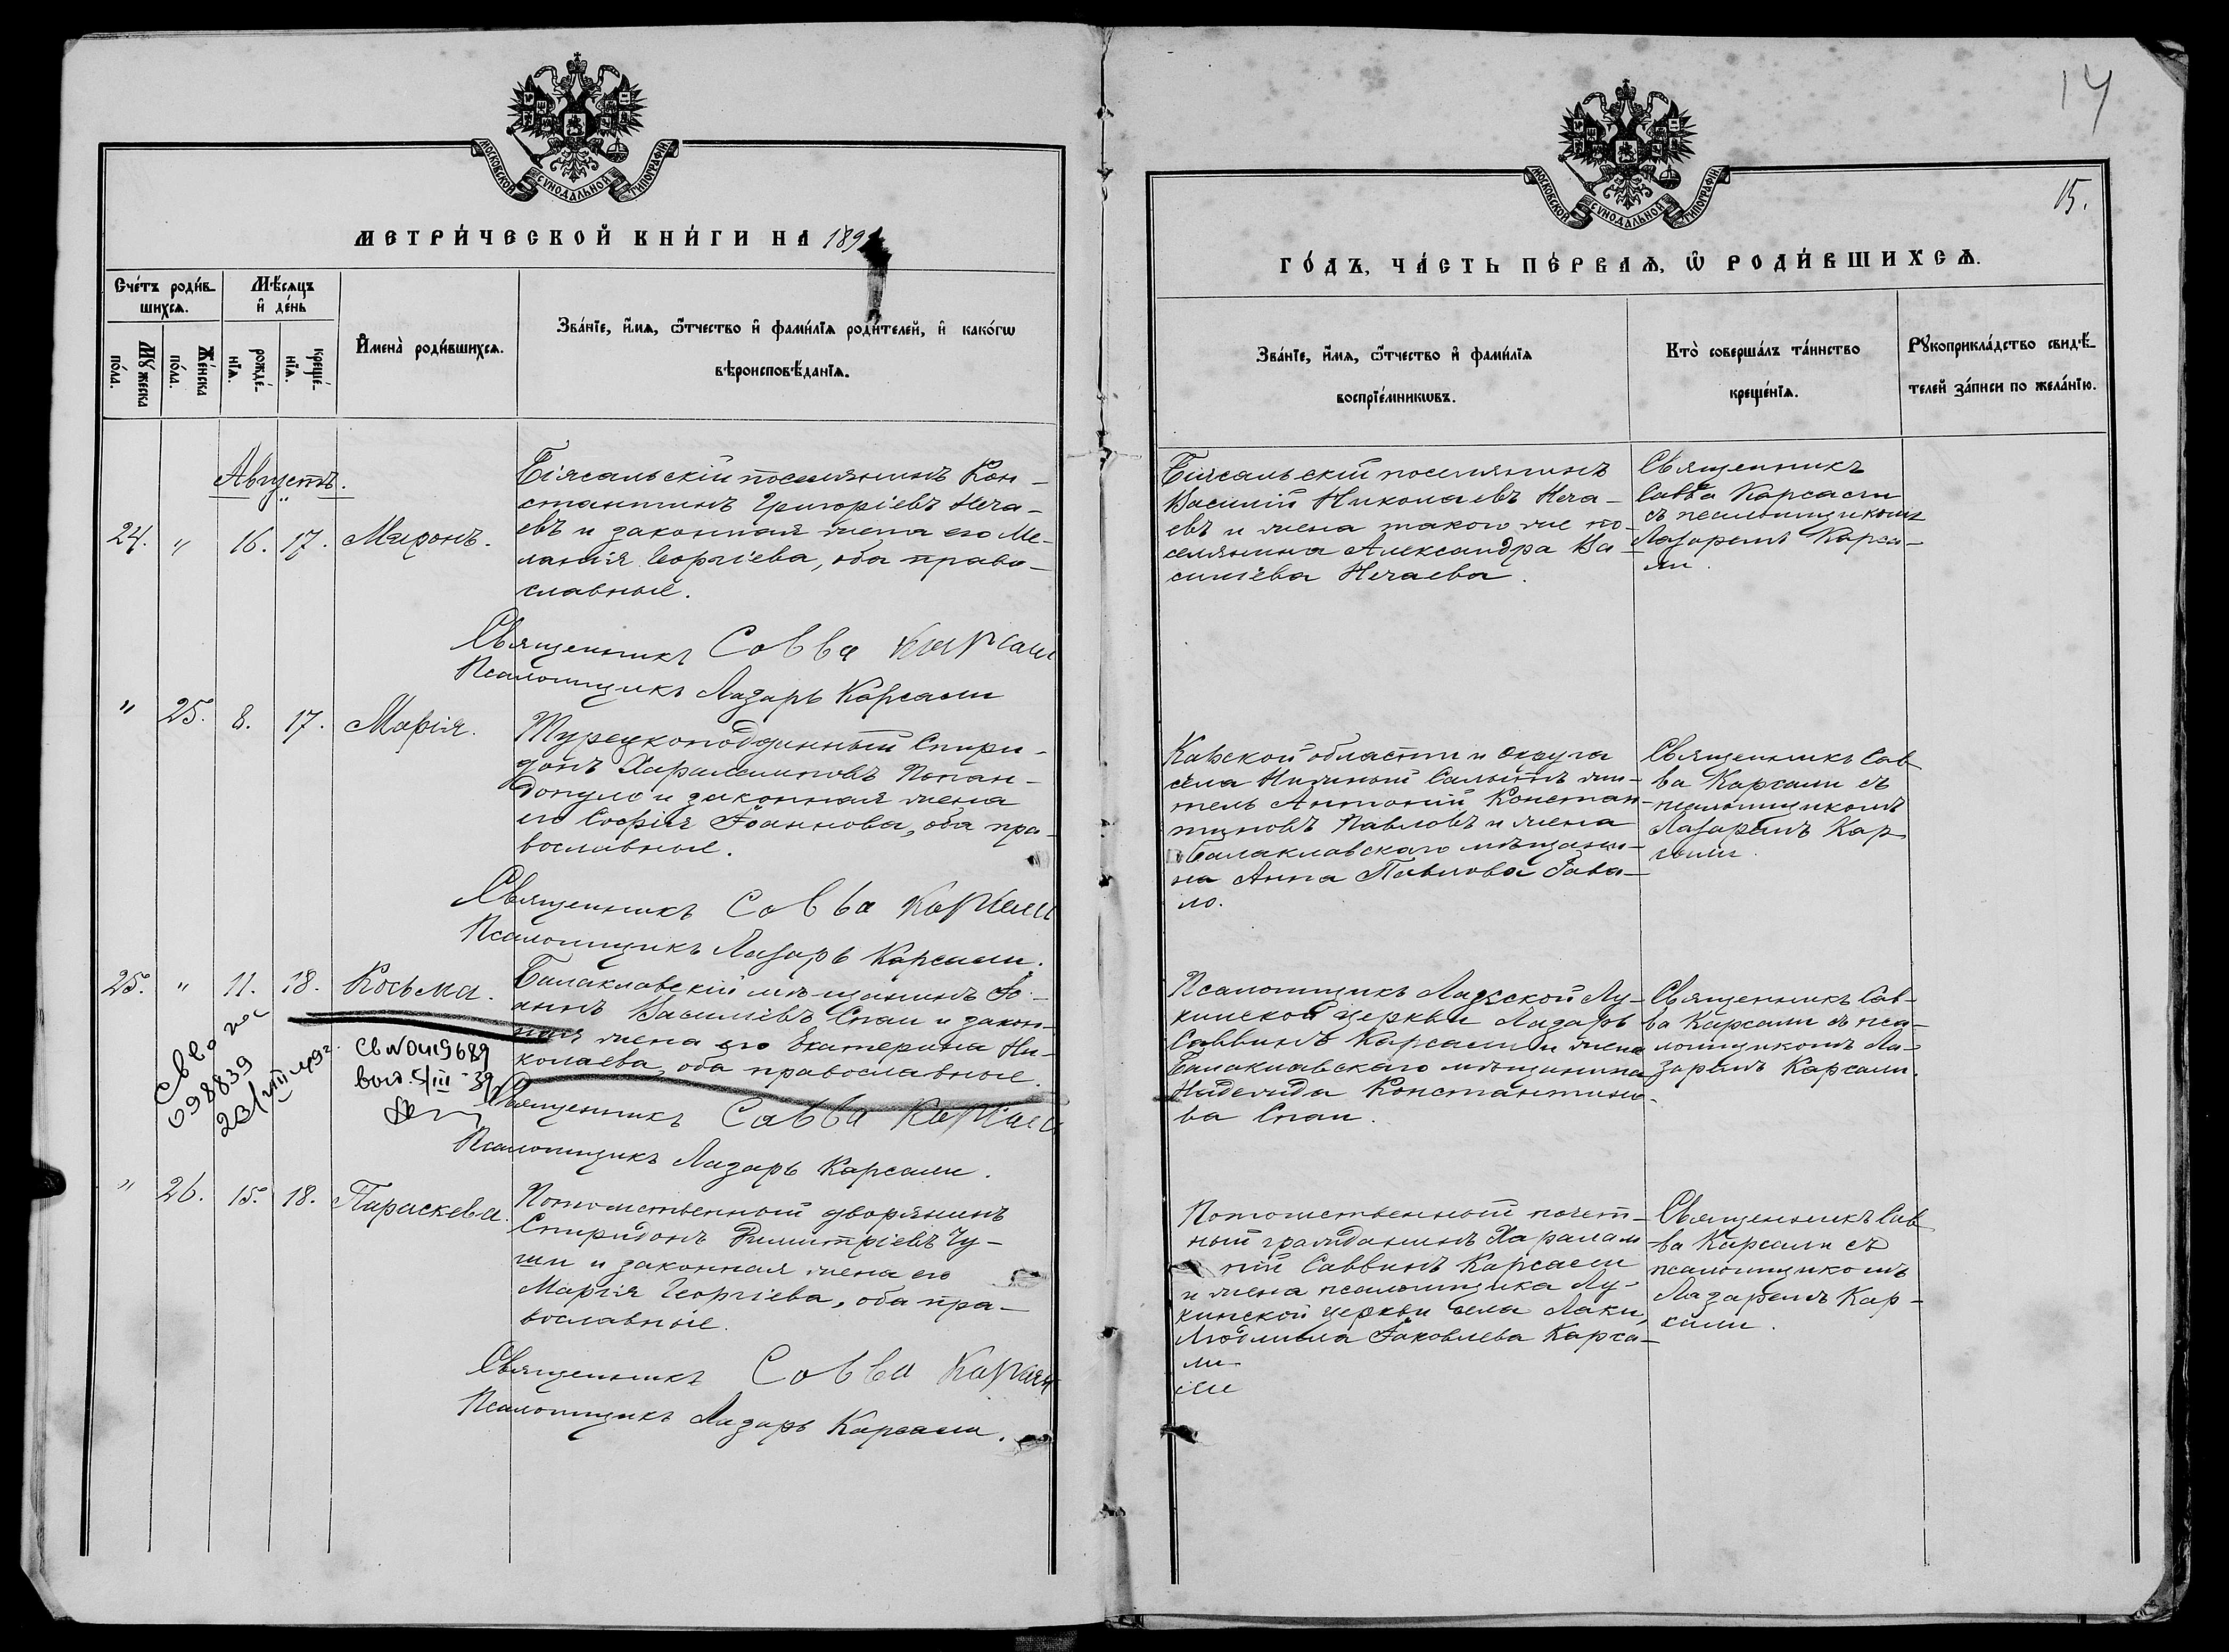 МОСКОВСКОЙ СУНОДАЛЬНОЙ ТИПОГРАФІИ
МЕТРИ́ЧЕСКОЙ КНИ́ГИ НА 189
Сче́тъ роди́в-
шихсѧ.
Мѣ́сѧцъ
и҆ де́нь
Мꙋ́жеска
по́ла.
Же́нска
по́ла.
рожде́-
нїѧ.
креще́-
нїѧ.
И҆мена̀ роди́вшихсѧ.
Зва́нїе, и҆́мѧ, ѻ҆́тчество и҆ фами́лїѧ роди́телей, и҆ како́гѡ
вѣроисповѣ́данїѧ.
Августъ.
24. " 16. 17. Миронъ.
Біясальскій поселянинъ Кон-
стантинъ Григоріевъ Неча-
евъ и законная жена его Ме-
ланія Георгіева, оба право-
славные.
Священникъ Савва Карсали
Псаломщикъ Лазарь Карсали
" 25. 8. 17. Марія.
Турецкоподданный Спири-
донъ Харалампіевъ Попан-
допуло и законная жена
его Софія Іоаннова, оба пра-
вославные.
Священникъ Савва Карсали
Псаломщикъ Лазарь Карсали.
25. " 11. 18. Косьма.
Балаклавскій мѣщанинъ Іо-
аннъ Василіевъ Спаи и закон-
ная жена его Екатерина Ни-
колаева, оба православные.
Св во на
098839
23/VIII-493г.
Св №0419689
выд. 5/III-39
Священникъ Савва Карсали
Псаломщикъ Лазарь Карсали.
" 26. 15. 18. Параскева.
Потомственный дворянинъ
Спиридонъ Димитріевъ Чу-
ши и законная жена его
Марія Георгіева, оба пра-
вославные.
Священникъ Савва Карсали
Псаломщикъ Лазарь Карсали.
14
15.
МОСКОВСКОЙ СУНОДАЛЬНОЙ ТИПОГРАФІИ
ГО́ДЪ, ЧА́СТЬ ПЕ́РВАѦ, Ѡ҆ РОДИ́ВШИХСѦ.
Зва́нїе, и҆́мѧ, ѻ҆́тчество и҆ фами́лїѧ
воспрїе́мникѡвъ.
Кто̀ соверша́лъ та́инство
креще́нїѧ.
Рꙋкоприкла́дство свидѣ́-
телей за́писи по жела́нїю.
Біясальскій поселянинъ
Василій Николаевъ Неча-
евъ и жена такого же по-
селянина Александра Ва-
силіева Нечаева.
Священникъ
Савва Карсали
съ псаломщикомъ
Лазаремъ Карса-
ли.
Карской области и округа
села Нижный Салытъ жи-
тель Антоній Констан-
тиновъ Павловъ и жена
Балаклавскаго мѣщани-
на Анна Павлова Гава-
ло.
Священникъ Сав
ва Карсали съ
псаломщикомъ
Лазаремъ Кар
сали.
Псаломщикъ Лакской Лу-
кинской церкви Лазарь
Саввинъ Карсали и жена
Балаклавскаго мѣщанина
Надежда Константино-
ва Спаи.
Священникъ Сав-
ва Карсали съ пса-
ломщикомъ Ла-
заремъ Карсали.
Потомственный почет-
ный гражданинъ Харалам
пій Саввинъ Карсали
и жена псаломщика Лу-
кинской церкви села Лаки,
Людмила Іаковлева Карса-
ли
Священникъ Сав
ва Карсали съ
псаломщикомъ
Лазаремъ Кар-
сали.